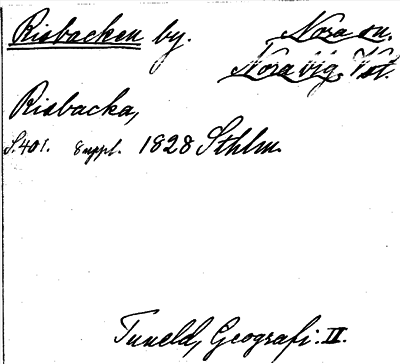 Risbacken by. Nora sn.
Nora vig. Vst.
Risbacka,
S. 401. Suppl. 1828 Sthlm.
Tuneld, Geografi. II.